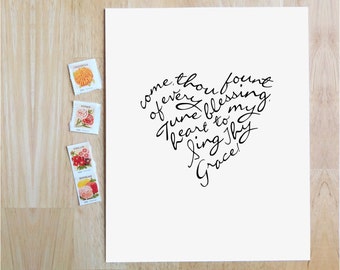 come thou fount
of every
Tune blessing
heart to my
Sing Thy
Grace